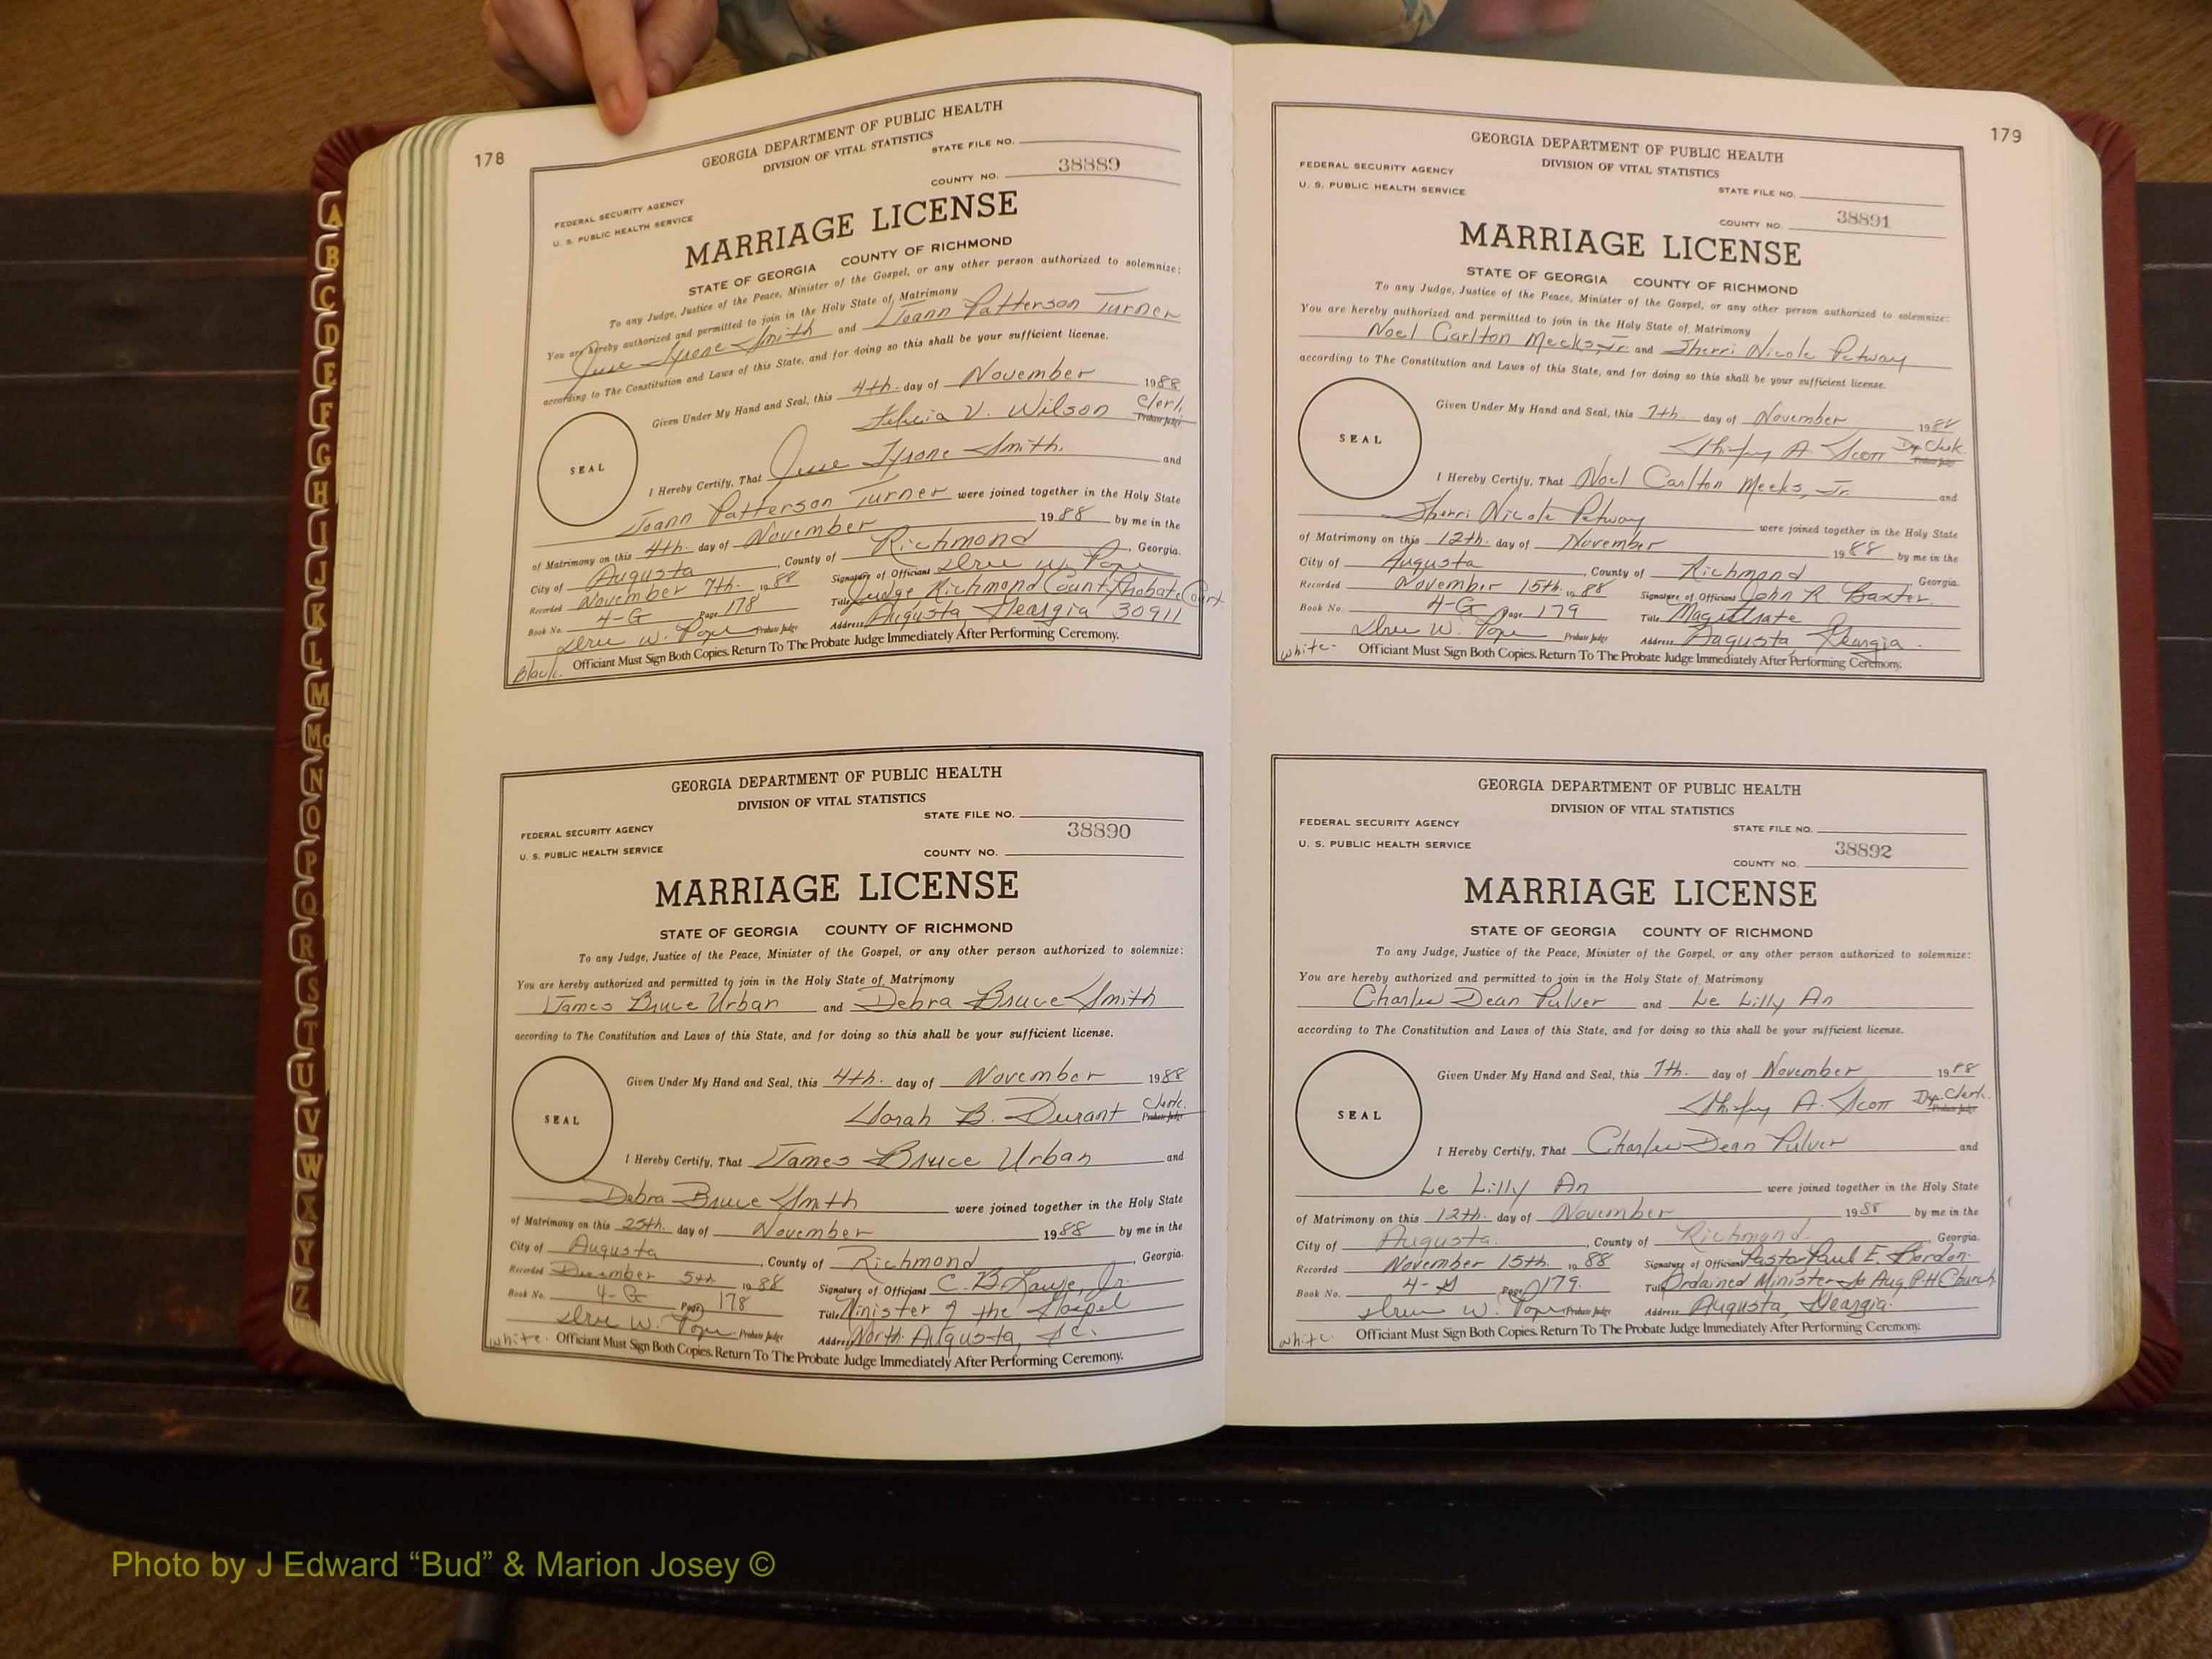 178
GEORGIA DEPARTMENT OF PUBLIC HEALTH
DIVISION OF VITAL STATISTICS
STATE FILE NO.
38889
COUNTY NO.
FEDERAL SECURITY AGENCY
U. S. PUBLIC HEALTH SERVICE
MARRIAGE LICENSE
STATE OF GEORGIA COUNTY OF RICHMOND
To any Judge, Justice of the Peace, Minister of the Gospel, or any other person authorized to solemnize:
You are hereby authorized and permitted to join in the Holy State of Matrimony
Jesse Tyrone Smith and Joann Patterson Turner
according to The Constitution and Laws of this State, and for doing so this shall be your sufficient license.
Given Under My Hand and Seal, this 4th. day of November 1988
Felicia V. Wilson Clerk
Probate Judge
SEAL
I Hereby Certify, That Jesse Tyrone Smith. and
Joann Patterson Turner were joined together in the Holy State
of Matrimony on this 4th. day of November 1988 by me in the
City of Augusta, County of Richmond, Georgia.
Recorded November 7th. 1988 Signature of Officiant W. Pope
Book No. 4-G Page 178 Title Judge Richmond County Probate Court
W. Pope Probate Judge Address Augusta, Georgia 30911
Black. Officiant Must Sign Both Copies. Return To The Probate Judge Immediately After Performing Ceremony.
GEORGIA DEPARTMENT OF PUBLIC HEALTH
DIVISION OF VITAL STATISTICS
STATE FILE NO.
FEDERAL SECURITY AGENCY
38890
U. S. PUBLIC HEALTH SERVICE
COUNTY NO.
MARRIAGE LICENSE
STATE OF GEORGIA COUNTY OF RICHMOND
To any Judge, Justice of the Peace, Minister of the Gospel, or any other person authorized to solemnize:
You are hereby authorized and permitted to join in the Holy State of Matrimony
James Bruce Urban and Debra Bruce Smith
according to The Constitution and Laws of this State, and for doing so this shall be your sufficient license.
Given Under My Hand and Seal, this 4th. day of November 1988
B. Durant Clerk.
Probate Judge
SEAL
I Hereby Certify, That James Bruce Urban and
Debra Bruce Smith were joined together in the Holy State
of Matrimony on this 25th. day of November 1988 by me in the
City of Augusta, County of Richmond, Georgia.
Recorded December 5th 1988 Signature of Officiant C. B. Jr.
Book No. 4-G Page 178 Title Minister of the Gospel
W. Pope Probate Judge Address North Augusta, SC.
white. Officiant Must Sign Both Copies. Return To The Probate Judge Immediately After Performing Ceremony.
179
GEORGIA DEPARTMENT OF PUBLIC HEALTH
DIVISION OF VITAL STATISTICS
FEDERAL SECURITY AGENCY
U. S. PUBLIC HEALTH SERVICE
STATE FILE NO.
38891
COUNTY NO.
MARRIAGE LICENSE
STATE OF GEORGIA COUNTY OF RICHMOND
To any Judge, Justice of the Peace, Minister of the Gospel, or any other person authorized to solemnize:
You are hereby authorized and permitted to join in the Holy State of Matrimony
Noel Carlton Meeks, Jr. and Sherri Nicole Petway
according to The Constitution and Laws of this State, and for doing so this shall be your sufficient license.
Given Under My Hand and Seal, this 7th. day of November 1988
Shirley A. Scott Dep. Clerk.
Probate Judge
SEAL
I Hereby Certify, That Noel Carlton Meeks, Jr. and
Sherri Nicole Petway were joined together in the Holy State
of Matrimony on this 12th. day of November 1988 by me in the
City of Augusta, County of Richmond, Georgia.
Recorded November 15th. 1988 Signature of Officiant John R. Baxter.
Book No. 4-G Page 179 Title Magistrate
W. Pope Probate Judge Address Augusta, Georgia.
white. Officiant Must Sign Both Copies. Return To The Probate Judge Immediately After Performing Ceremony.
GEORGIA DEPARTMENT OF PUBLIC HEALTH
DIVISION OF VITAL STATISTICS
FEDERAL SECURITY AGENCY
STATE FILE NO.
U. S. PUBLIC HEALTH SERVICE
38892
COUNTY NO.
MARRIAGE LICENSE
STATE OF GEORGIA COUNTY OF RICHMOND
To any Judge, Justice of the Peace, Minister of the Gospel, or any other person authorized to solemnize:
You are hereby authorized and permitted to join in the Holy State of Matrimony
Charles Dean Pulver and Le Lilly An
according to The Constitution and Laws of this State, and for doing so this shall be your sufficient license.
Given Under My Hand and Seal, this 7th. day of November 1988
Shirley A. Scott Dep. Clerk.
Probate Judge
SEAL
I Hereby Certify, That Charles Dean Pulver and
Le Lilly An were joined together in the Holy State
of Matrimony on this 12th. day of November 1988 by me in the
City of Augusta. County of Richmond. Georgia.
Recorded November 15th. 1988 Signature of Officiant Pastor Paul E.
Book No. 4-G Page 179. Title Ordained Minister Aug. P.H Church
W. Pope Probate Judge Address Augusta, Georgia.
white. Officiant Must Sign Both Copies. Return To The Probate Judge Immediately After Performing Ceremony.
A
B
C
D
E
F
G
H
I
J
K
L
M
Mc
N
O
P
Q
R
S
T
U
V
W
X
Y
Z
Photo by J Edward “Bud” & Marion Josey ©